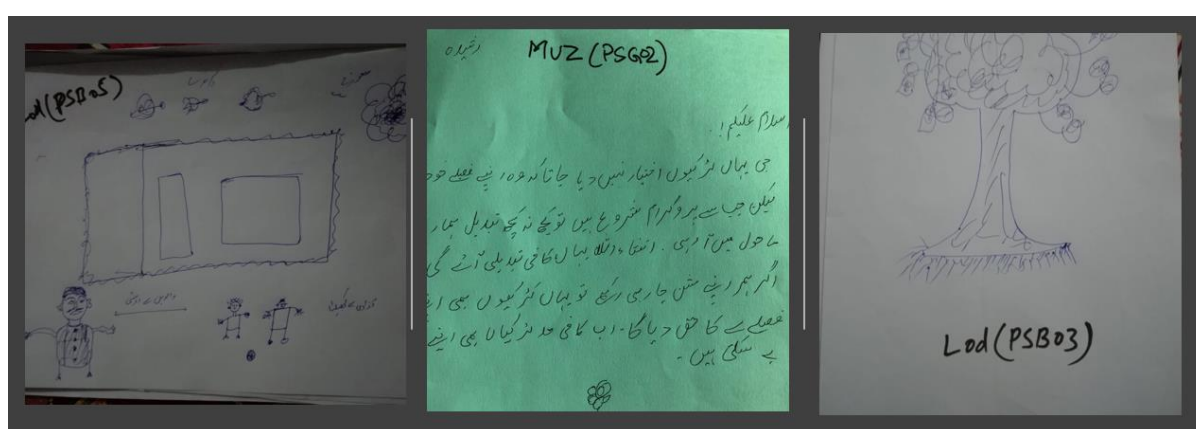 Lod(PSB05)
MUZ (PSG02)
رشیدہ
اسلام علیکم!
جی یہاں لڑکیوں اختیار نہیں دیا جاتا کہ وہ اپنے فیصلے خود
لیکن جب سے پروگرام شروع ہیں تو کچھ نہ کچھ تبدیل ہمار
ماحول میں آ رہی. انشاءاللہ یہاں کافی تبدیلی آئے گی
اگر ہم اپنے مشن جاری رکھے تو یہاں لڑکیوں بھی اپنے
فیصلے کا حق دیا گا۔ اب کافی حد لڑکیاں بھی اپنے
سکتی ہیں۔
Lod(PSB03)